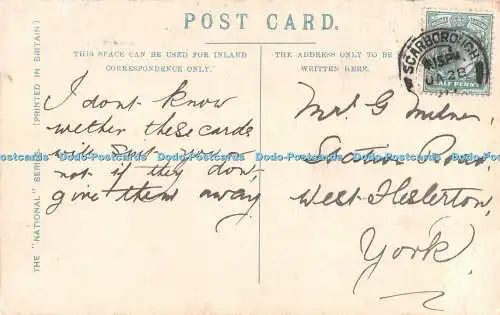 POST CARD.
THIS SPACE CAN BE USED FOR INLAND
CORRESPONDENCE ONLY.
THE ADDRESS ONLY TO BE
WRITTEN HERE.
SCARBOROUGH
JA 28
HALF PENNY
THE "NATIONAL" SERIES. (PRINTED IN BRITAIN)
I dont know
wether these cards
will suit you
not if they dont
give them away
Mrs G Milner,
Station Road,
West Heslerton,
York.
Dodo-Postcards Dodo-Postcards Dodo-Postcards Dodo-Postcards Dodo-Postcards